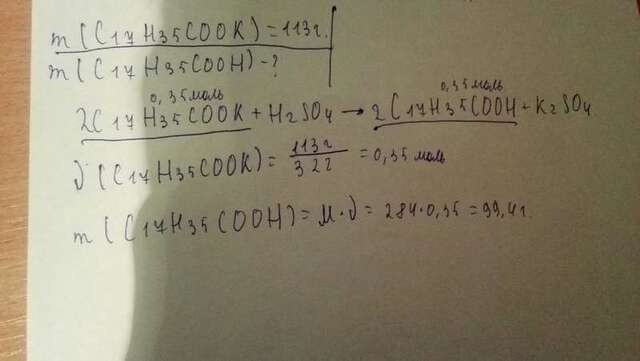 m(C17H35COOK)=113г.
m(C17H35COOH)-?
0,35моль 0,35моль
2C17H35COOK+H2SO4→2C17H35COOH+K2SO4
ν(C17H35COOK)=113г/322=0,35моль
m(C17H35COOH)=M·ν=284·0,35=99,4г.